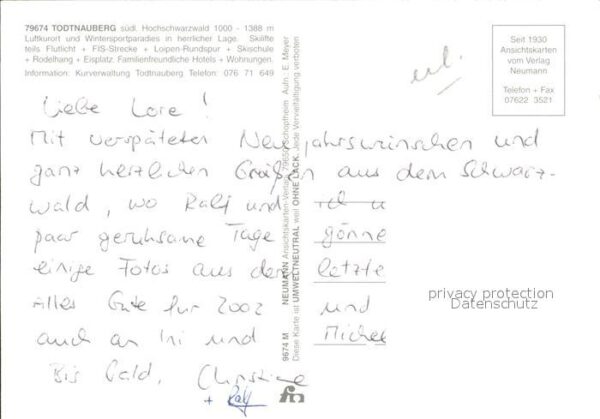 79674 TODTNAUBERG südl. Hochschwarzwald 1000 - 1388 m
Luftkurort und Wintersportparadies in herrlicher Lage. Skilifte
teils Flutlicht + FIS-Strecke + Loipen-Rundspur + Skischule
+ Rodelhang + Eisplatz. Familienfreundliche Hotels + Wohnungen.
Information: Kurverwaltung Todtnauberg Telefon: 076 71 649
Seit 1930
Ansichtskarten
vom Verlag
Neumann
Telefon + Fax
07622 3521
erl.
Liebe Lore!
Mit verspäteten Neujahrswünschen und
ganz herzlichen Grüßen aus dem Schwarz-
wald, wo Ralf und ich u
paar geruhsame Tage gönne
einige Fotos aus der letzte
Alles Gute für 2002 und
auch an und Michae
Bis bald, Christine
+ Ralf
9674 M NEUMANN Ansichtskarten-Verlag 79650 Schopfheim Aufn.: E. Meyer
Diese Karte ist UMWELTNEUTRAL weil OHNE LACK. Jede Vervielfältigung verboten
privacy protection
Datenschutz